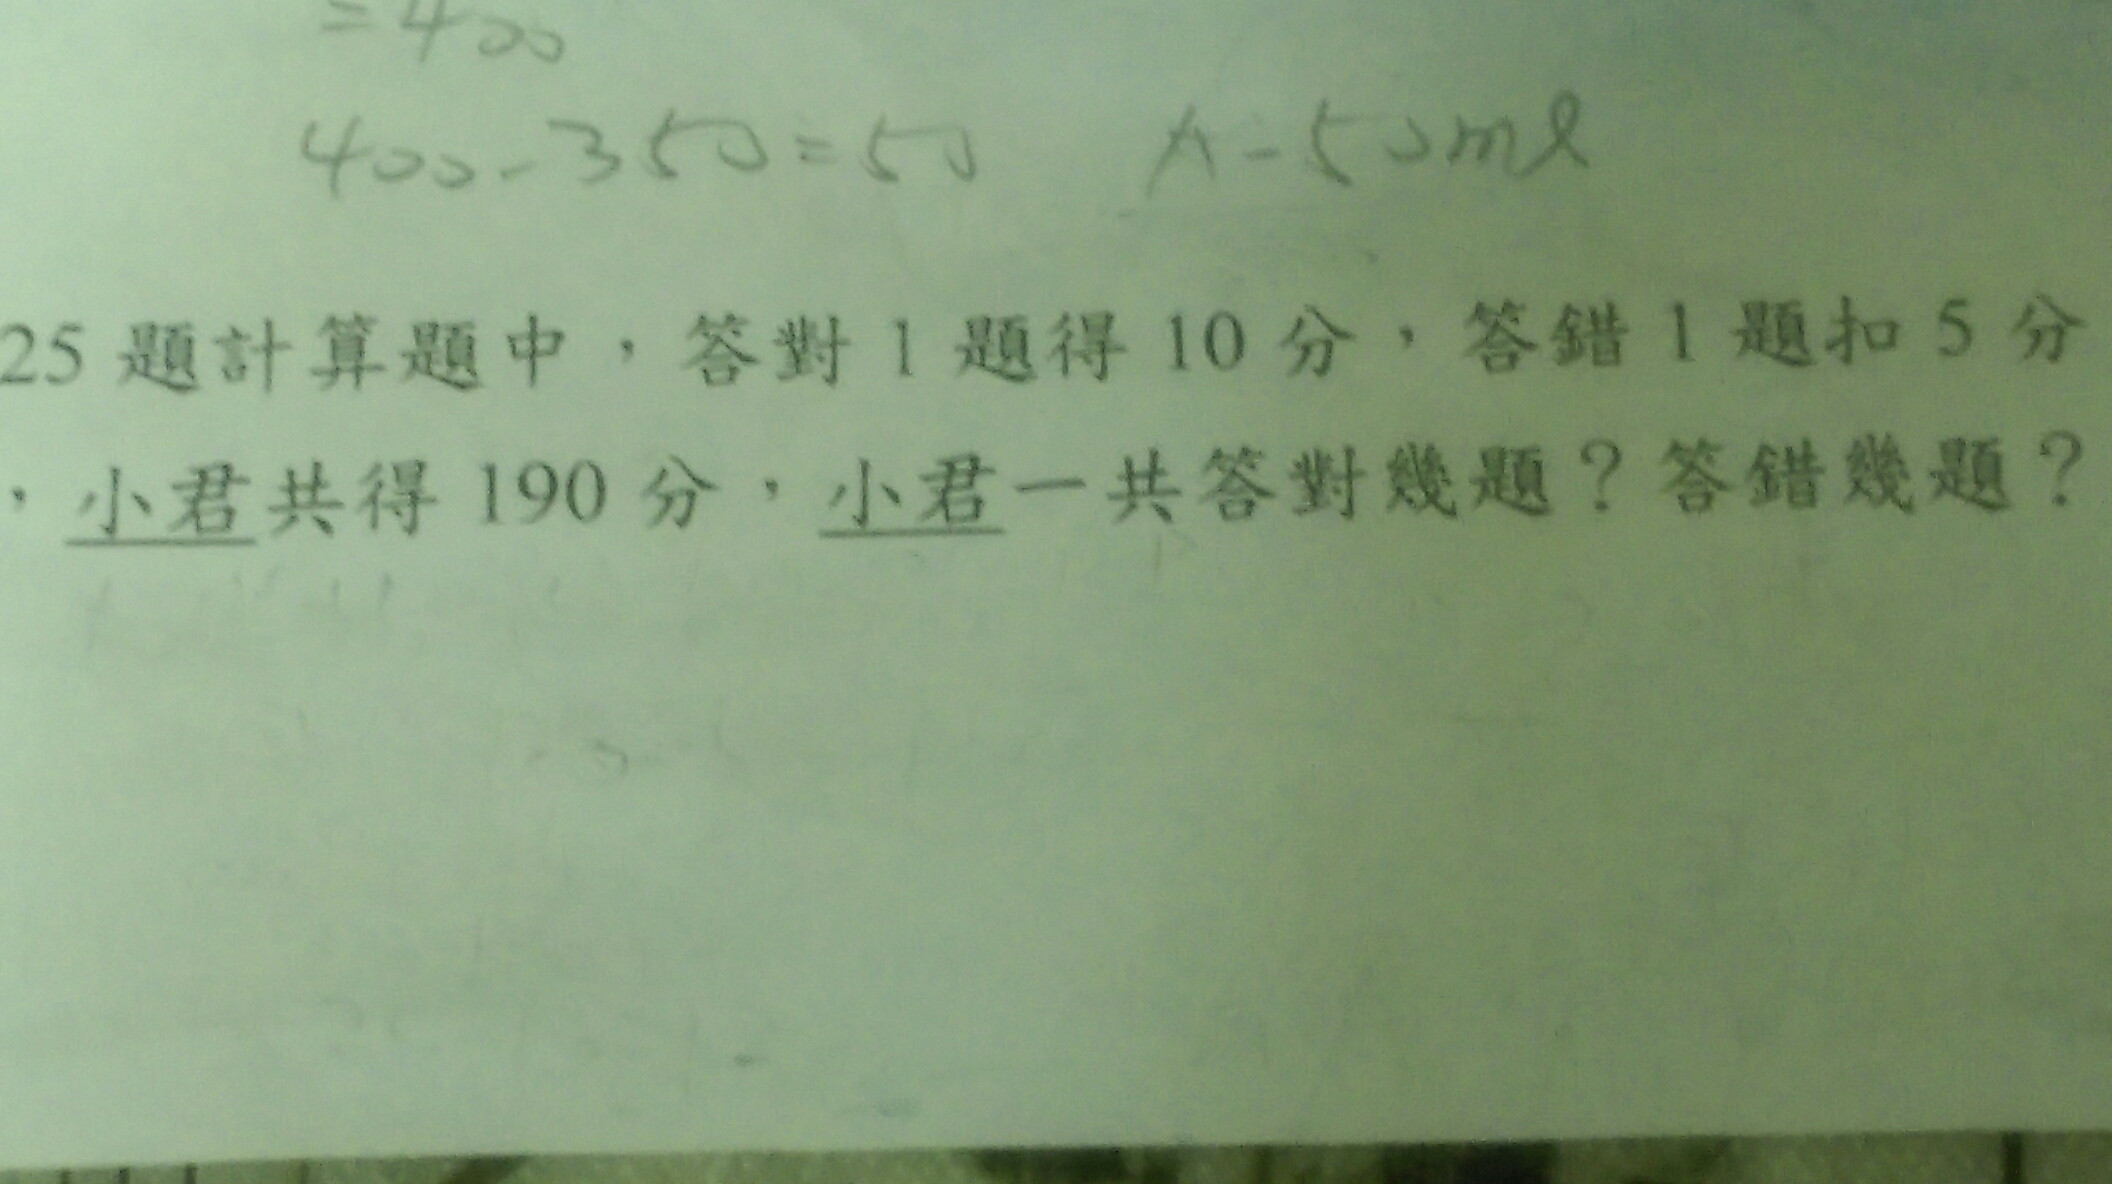 =400
400-350=50 A-50ml
25 題計算題中，答對 1 題得 10 分，答錯 1 題扣 5 分
，小君共得 190 分，小君一共答對幾題？答錯幾題？